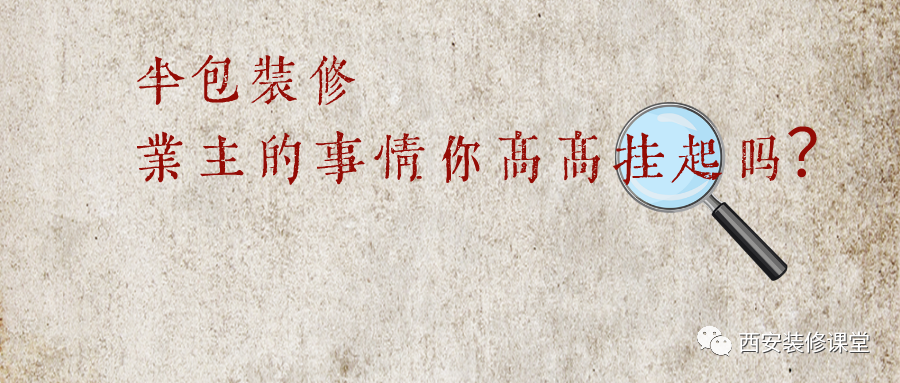 半包裝修
業主的事情你高高挂起吗?
西安装修课堂